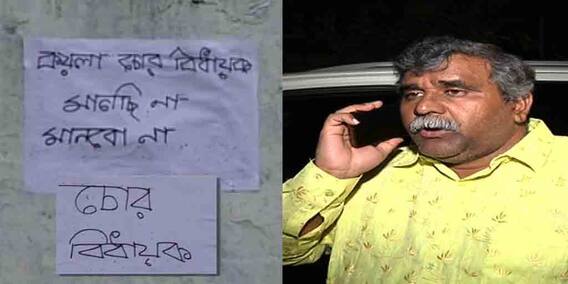 কয়লা চোর বিধায়ক
মানছি না
মানবো না
চোর
বিধায়ক